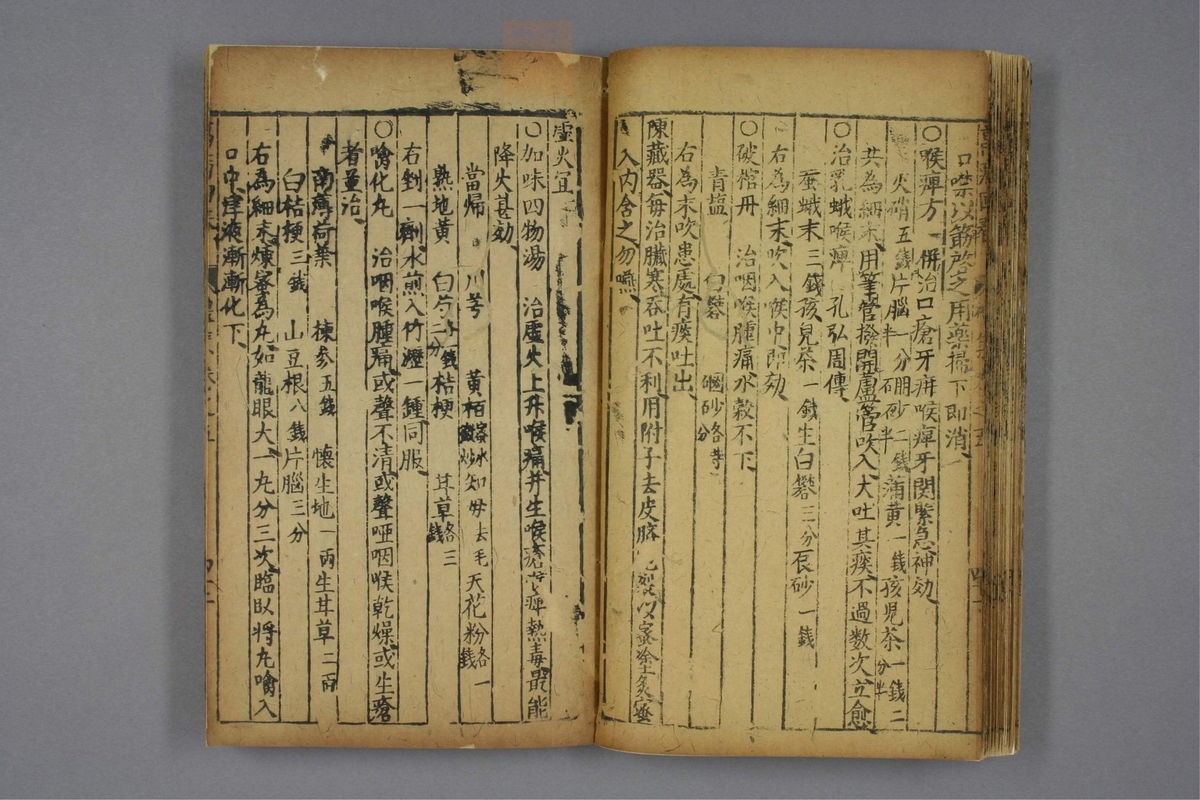 口噤以筋啓之用藥掃下即消
○喉痺方 併治口瘡牙疳喉痺牙関緊急神効
火硝五錢片腦一分半硼砂二錢半蒲黄一錢孩兒茶一錢二分半
共為細末用筆管撥開蘆管吹入大吐其痰不過数次立愈
○治乳蛾喉痺 孔弘周傳
蚕蛾末三錢孩兒茶一錢生白礬三分 砂一錢
右為細末吹入喉中即効
○破棺丹 治咽喉腫痛水穀不下
青塩 白礬 碙砂各等分
右為末吹患處有痰吐出
陳藏器每治臟寒吞吐不利用附子去皮臍 裂以蜜塗炙
入内含之勿嚥
虛火宜
○加味四物湯 治虛火上升喉痛并生喉瘡 痺熱毒最能
降火甚効
當帰 川芎 黄栢蜜水炒知母去毛天花粉各一錢
熟地黄 白芍一錢二分桔梗 甘草各三錢
右剉一劑水煎入竹瀝一鍾同服
○噙化丸 治咽喉腫痛或聲不清或聲啞咽喉乾燥或生瘡
者並治
南薄荷葉 楝参五錢 懷生地一兩生甘草二兩
白桔梗三錢 山豆根八錢片腦三分
右為細末煉蜜為丸如龍眼大一丸分三次臨臥將丸噙入
口中津液漸漸化下